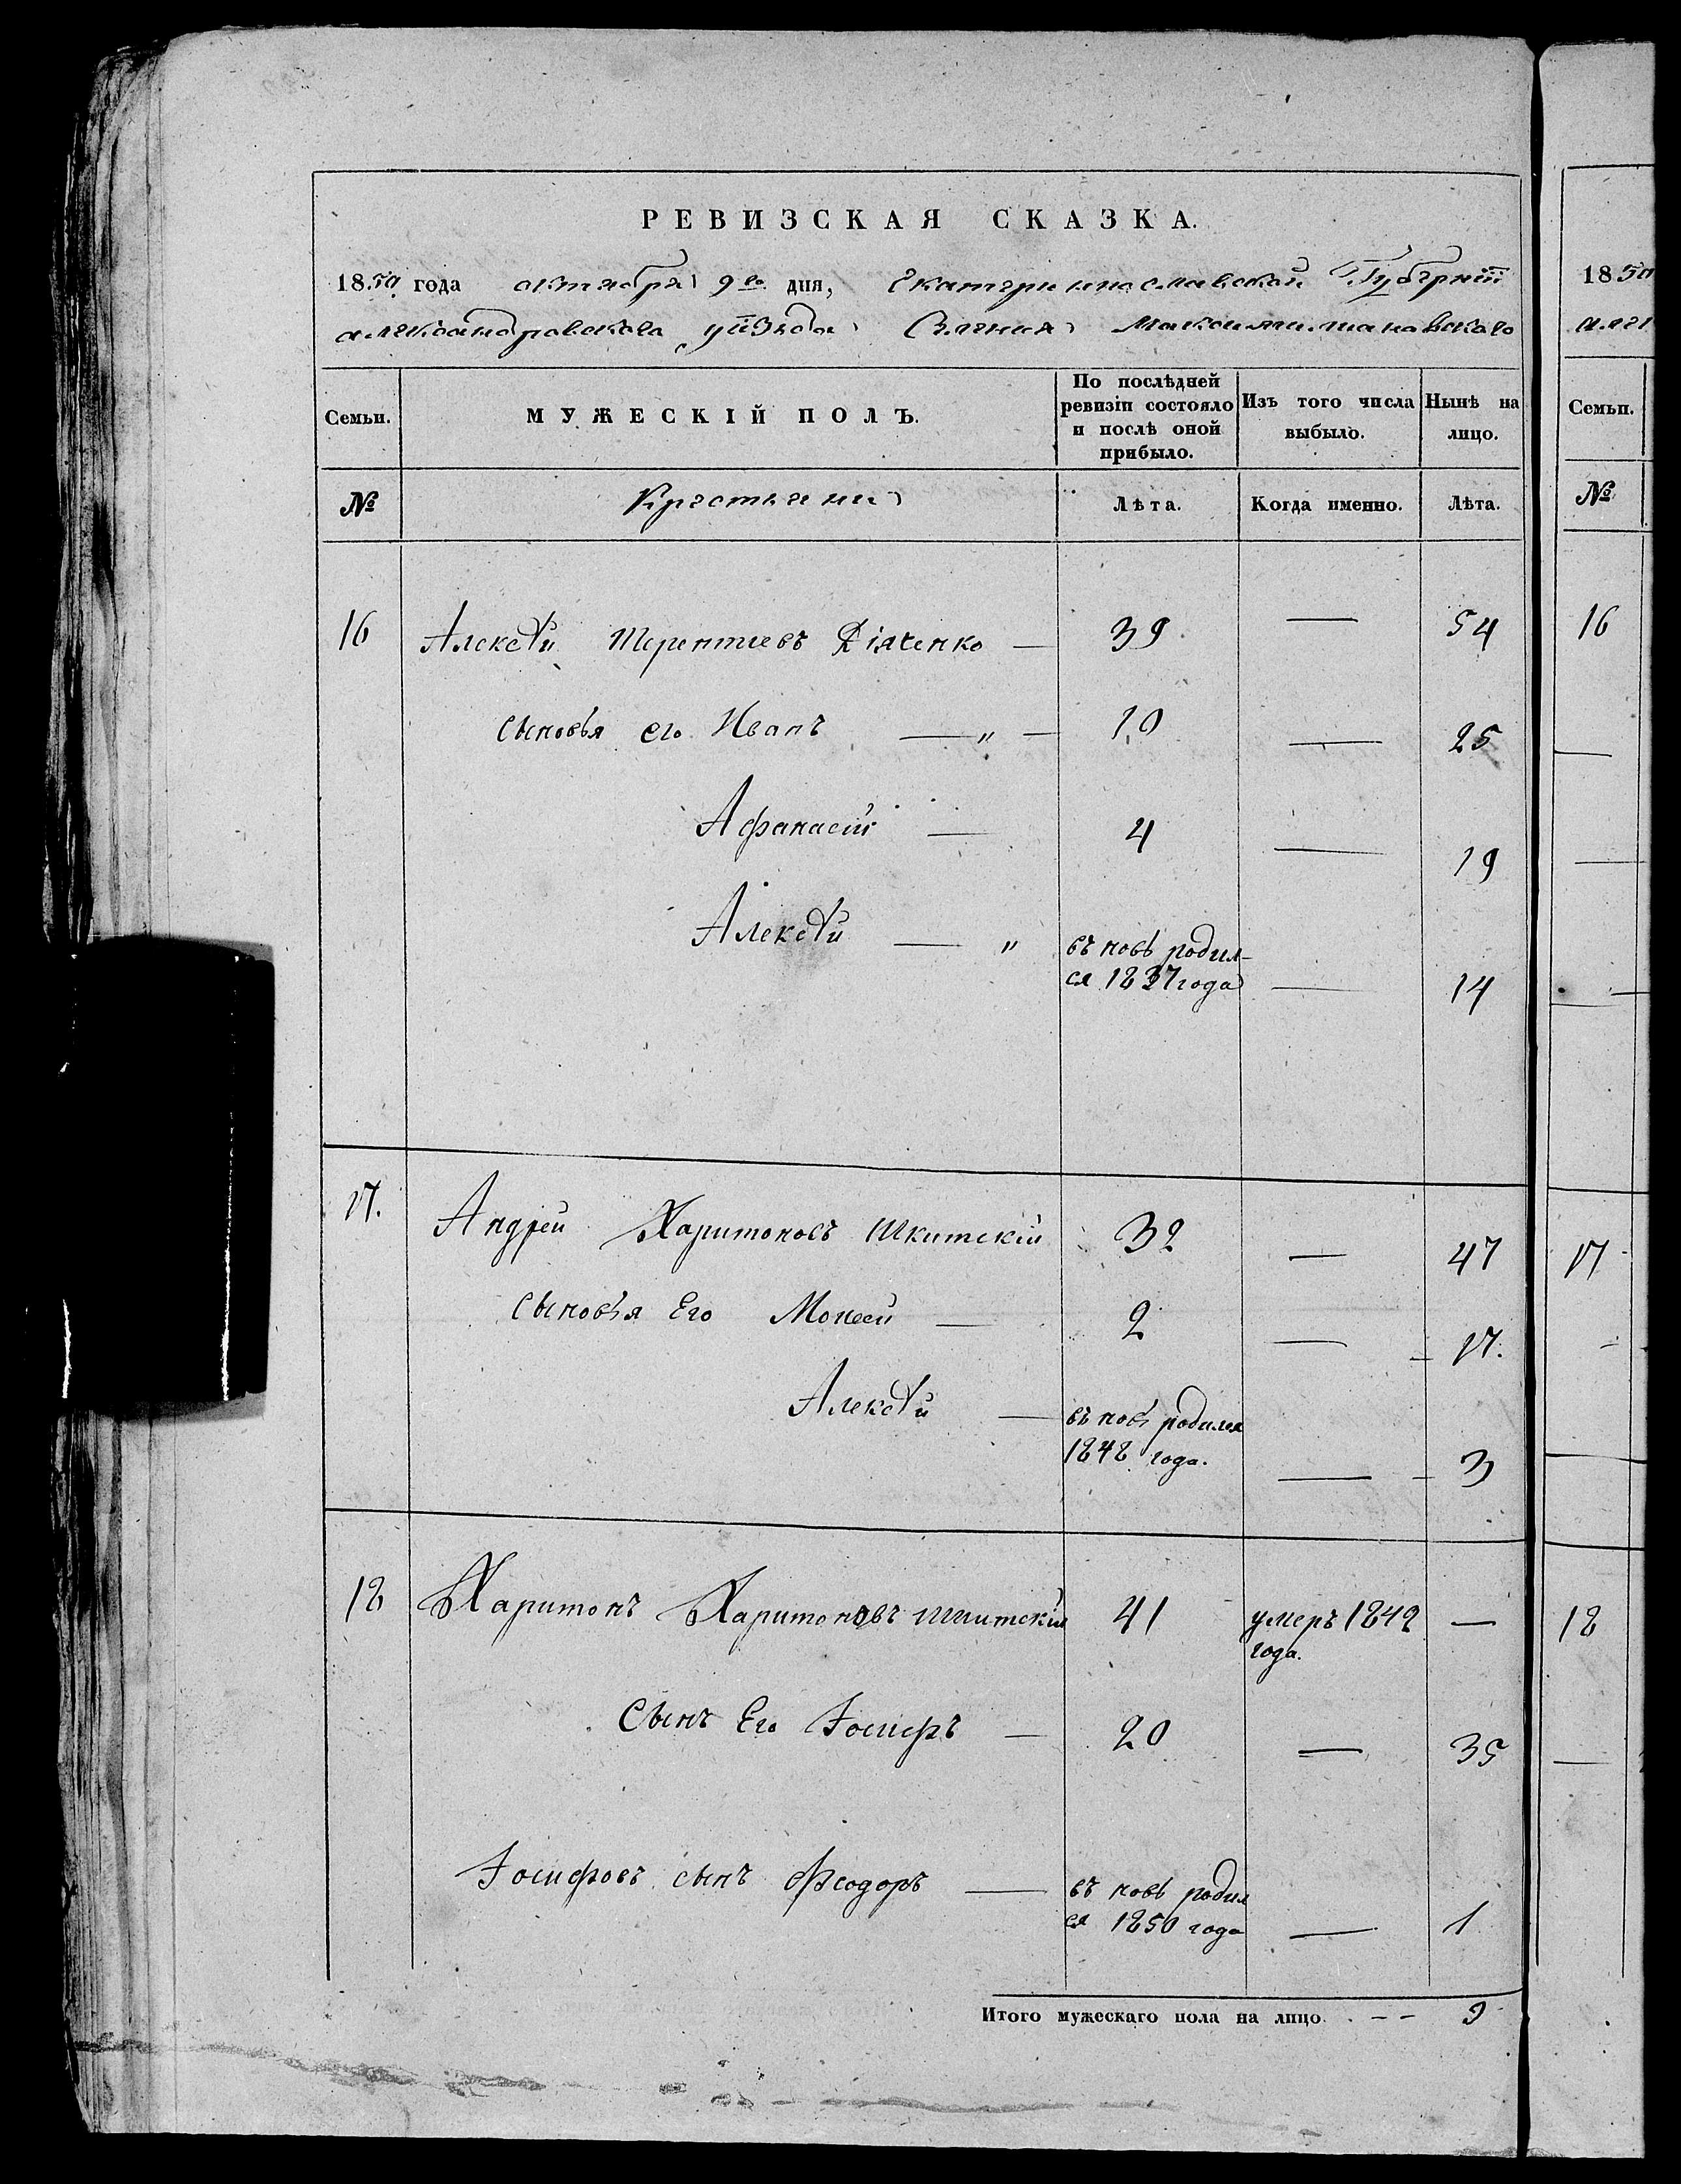 РЕВИЗСКАЯ СКАЗКА.
1850 года октября 9го дня, Екатеринославской Губернии
александровского уѣзда Селения Максимилиановского
Семьи. МУЖЕСКІЙ ПОЛЪ. По послѣдней ревизіи состояло и послѣ оной прибыло. Изъ того числа выбыло. Нынѣ на лицо.
№ Крестьяни Лѣта. Когда именно. Лѣта.
16 Алексѣй Терентиевъ Діяченко — 39 — 54
сыновья его Иванъ — " — 10 — 25
Афанасій — 4 — 19
Алексѣй — " въ новѣ родил-
ся 1837 года — 14
17. Андрей Харитоновъ Шкитскій 32 — 47
сыновья Его Моисей — 2 — 17.
Алексѣй — въ новѣ родился
1848 года. — 3
18 Харитонъ Харитоновъ шкитскій 41 умеръ 1842 —
года.
Сынъ Его Іосифъ — 20 — 35
Іосифовъ сынъ Феодоръ — въ новѣ родил
ся 1850 года — 1
Итого мужескаго пола на лицо. - - 9
1850
Семьи.
№
16
17
18